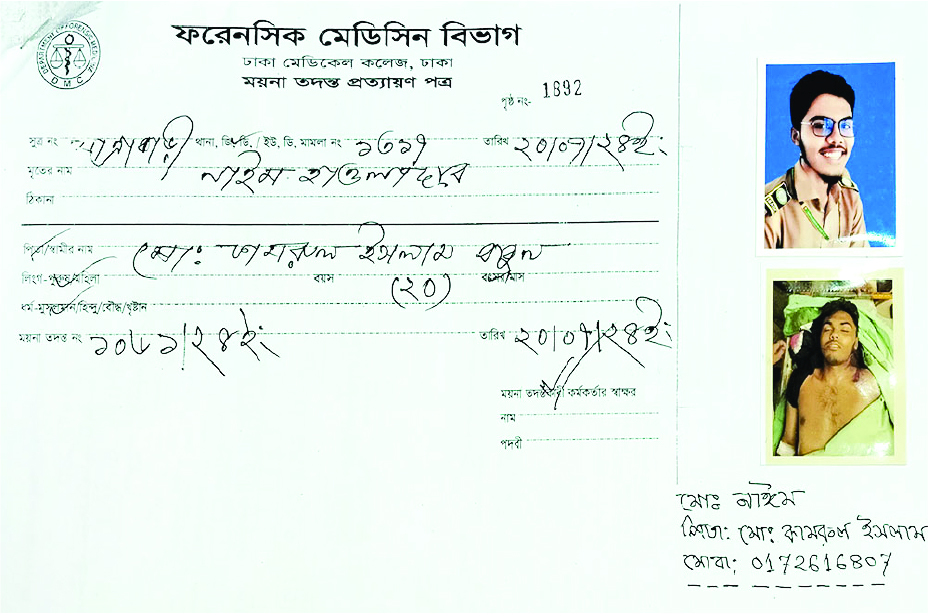 DEPARTMENT OF FORENSIC MEDICINE
DMC
ফরেনসিক মেডিসিন বিভাগ
ঢাকা মেডিকেল কলেজ, ঢাকা
ময়না তদন্ত প্রত্যায়ণ পত্র
পৃষ্ঠ নং- 1892
সূত্র নং যাত্রাবাড়ী থানা, জি, ডি, / ইউ, ডি, মামলা নং তারিখ ২০/০৭/২৪ইং
মৃতের নাম নাইম হাওলাদার
ঠিকানা
পিতা/স্বামীর নাম মো: কামরুল ইসলাম
লিংগ-পুরুষ/মহিলা বয়স (২০) বৎসর/মাস
ধর্ম-মুসলমান/হিন্দু/বৌদ্ধ/খৃষ্টান
ময়না তদন্ত নং ১০৬১/২৪ইং তারিখ ২০/০৭/২৪ইং
ময়না তদন্তকারী কর্মকর্তার স্বাক্ষর
নাম
পদবী
মোঃ নাঈম
পিতা: মোঃ কামরুল ইসলাম
মোবা: 0172616807